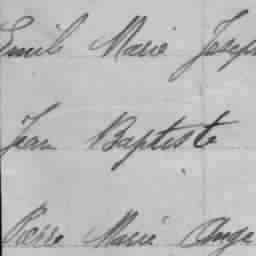 Emile Marie Joseph
Jean Baptiste
Pierre Marie Ange